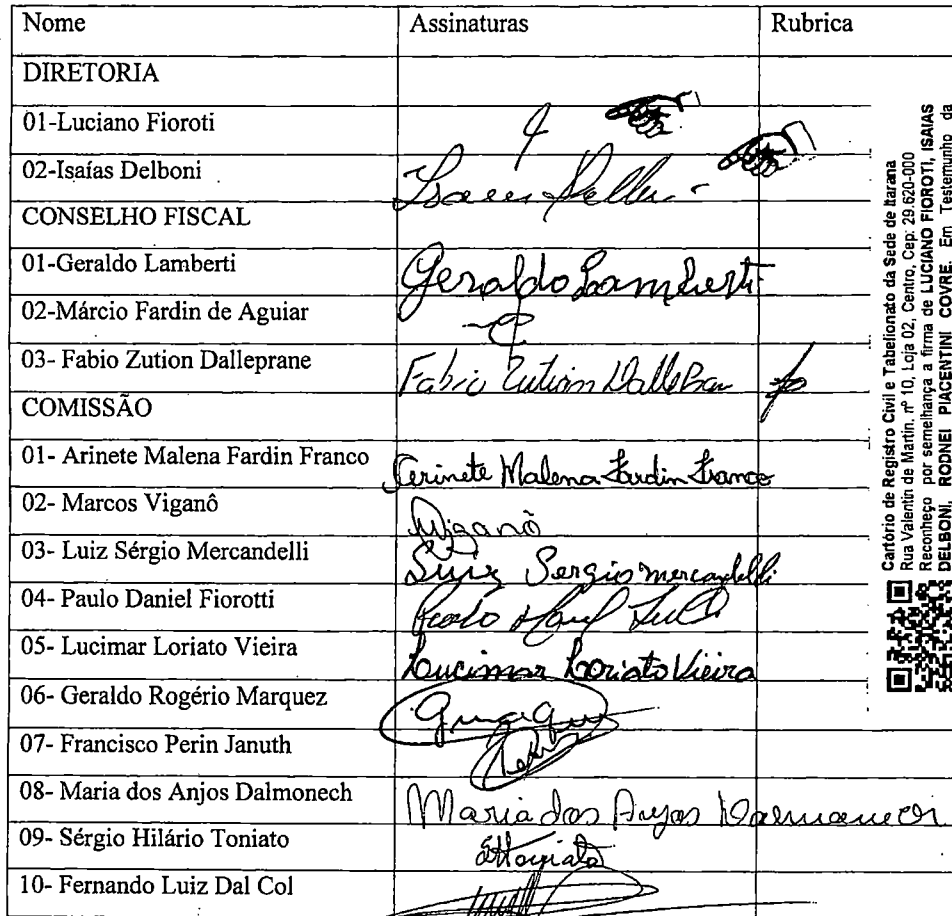 Nome Assinaturas Rubrica
DIRETORIA
01-Luciano Fioroti
02-Isaías Delboni
CONSELHO FISCAL
01-Geraldo Lamberti Geraldo Lamberti
02-Márcio Fardin de Aguiar
03- Fabio Zution Dalleprane Fabio Zution
COMISSÃO
01- Arinete Malena Fardin Franco Arinete Malena Fardin Franco
02- Marcos Viganô Viganô
03- Luiz Sérgio Mercandelli Luiz Sergio mercandelli
04- Paulo Daniel Fiorotti
05- Lucimar Loriato Vieira Lucimar Loriato Vieira
06- Geraldo Rogério Marquez
07- Francisco Perin Januth
08- Maria dos Anjos Dalmonech Maria dos Anjos
09- Sérgio Hilário Toniato
10- Fernando Luiz Dal Col
Cartório de Registro Civil e Tabelionato da Sede de Itarana
Rua Valentin de Martin. nº 10, Loja 02, Centro, Cep: 29.620-000
Reconheço por semelhança a firma de LUCIANO FIOROTI, ISAIAS
DELBONI, RODNEI PIAGENTINI COVRE. Em Testemunho da